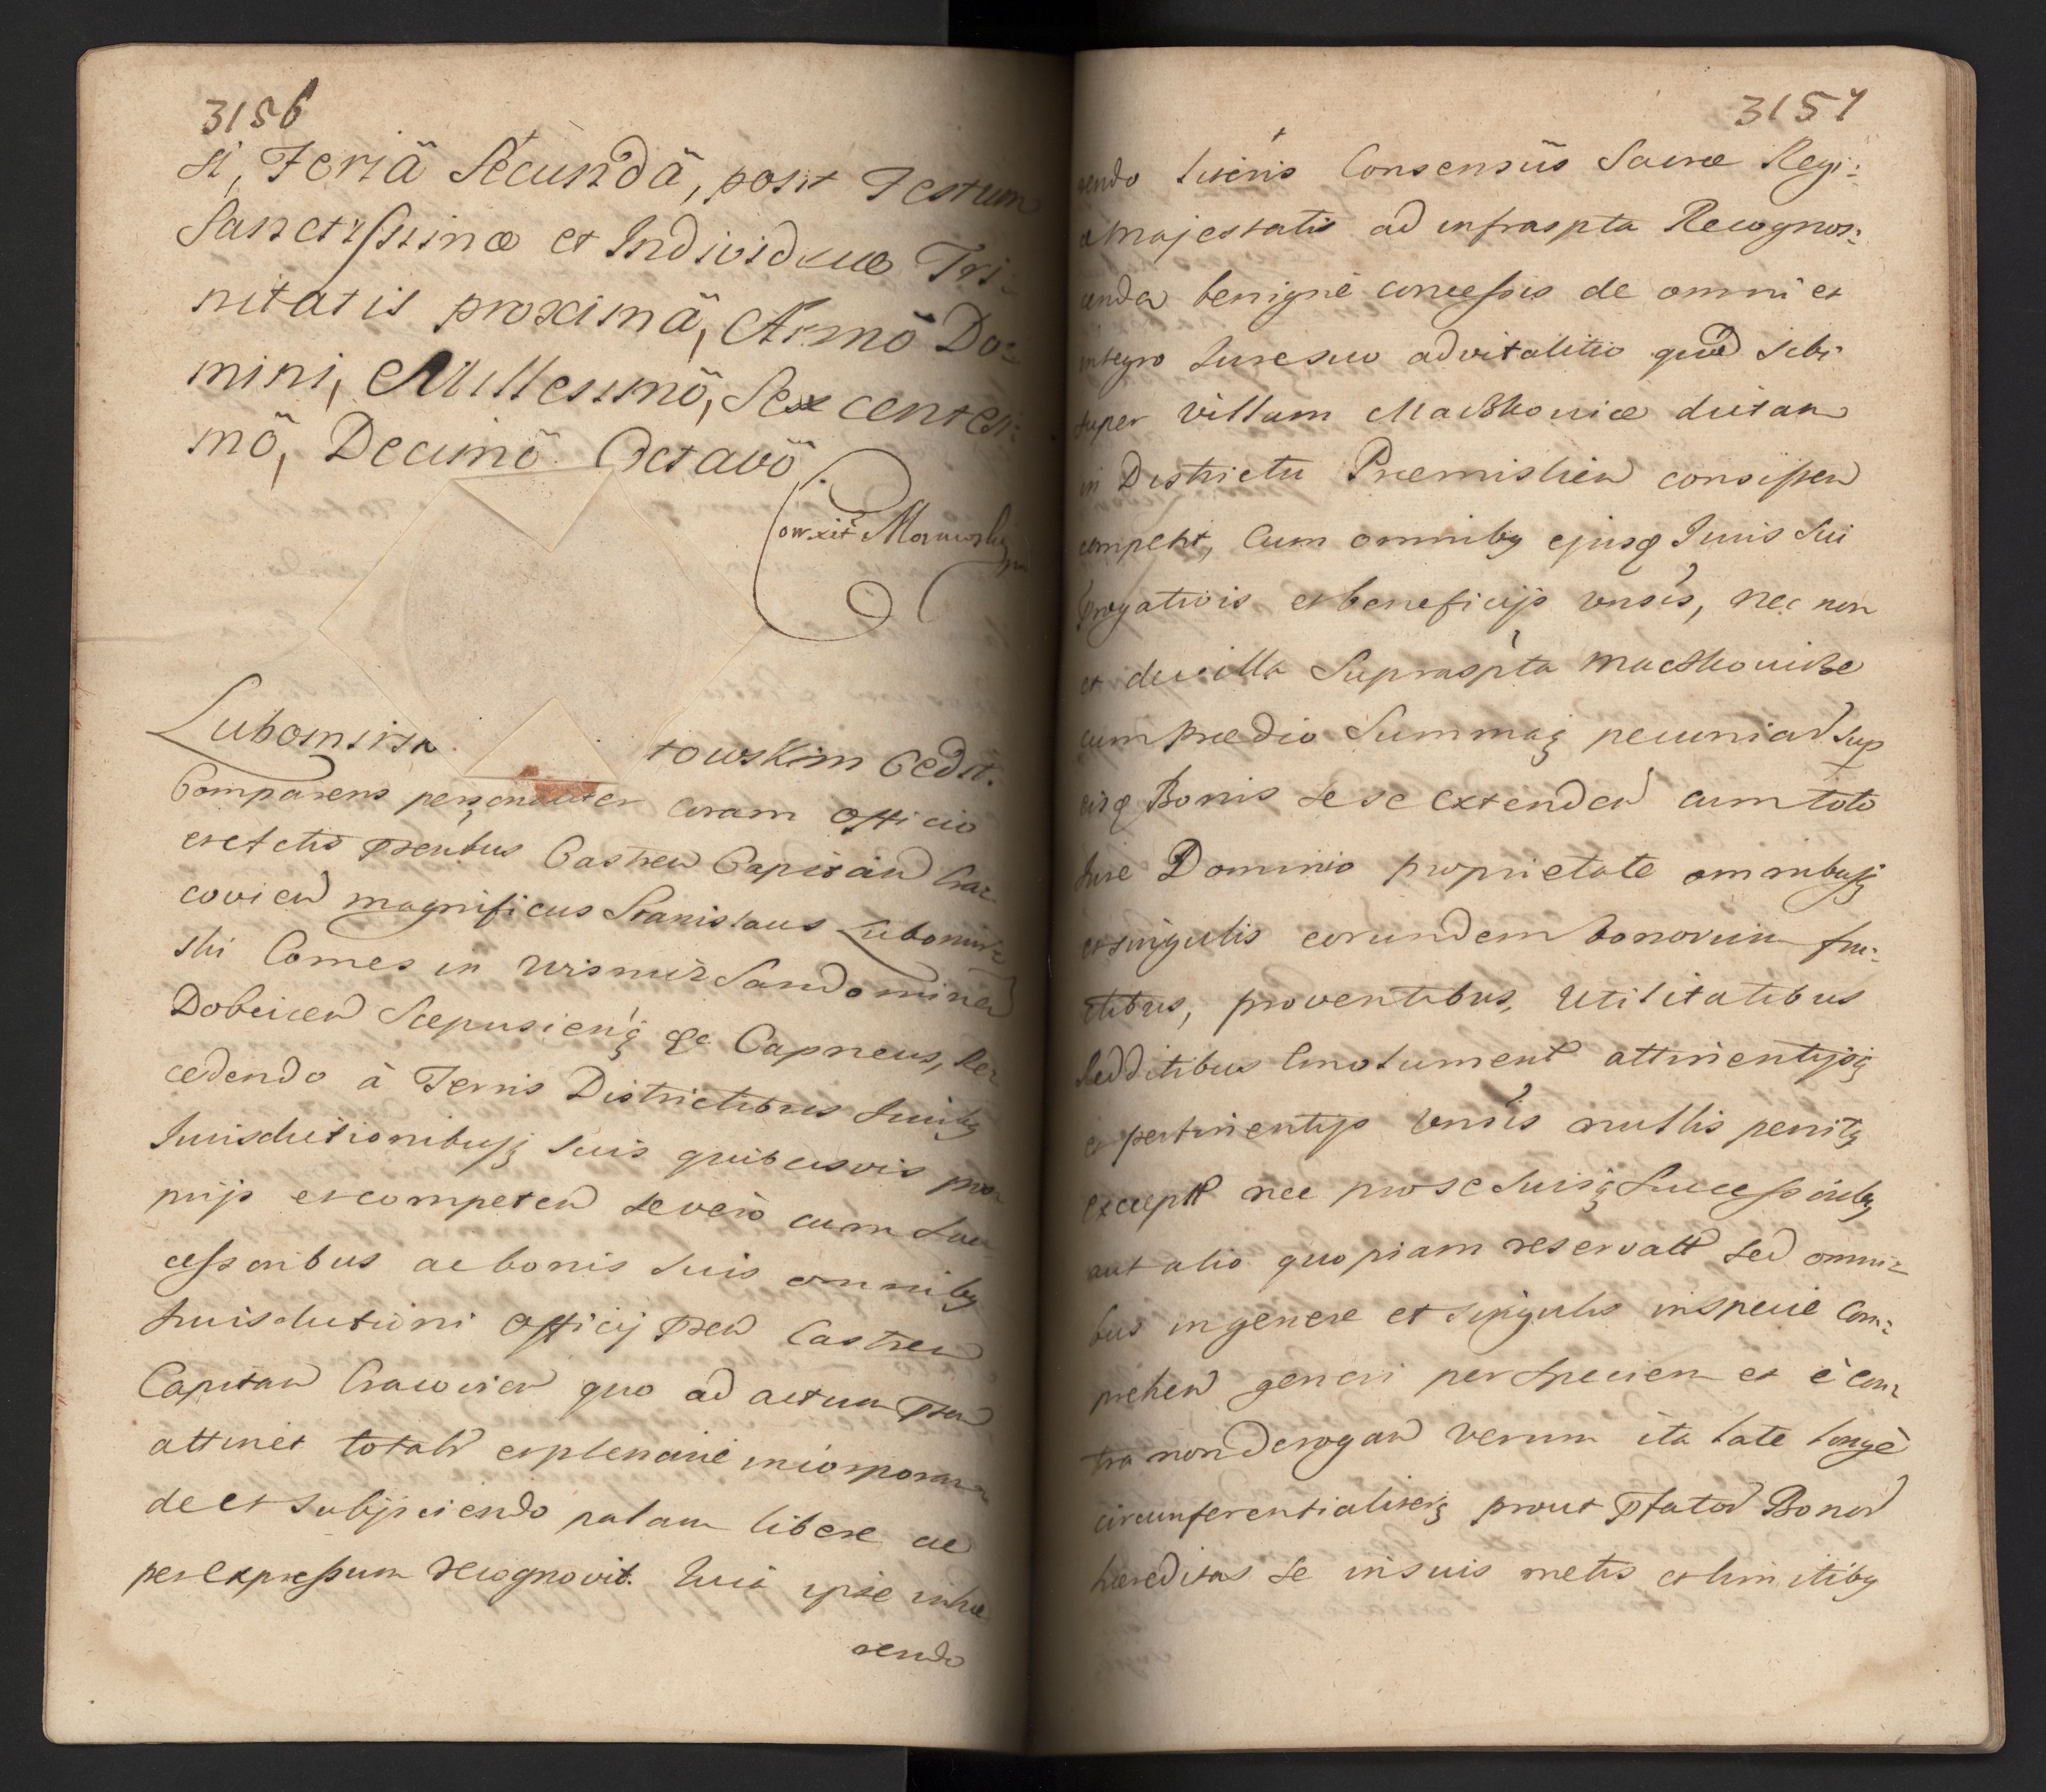 3156
si, Feriâ Secundâ, post Festum
Sanctissimæ et Individuæ Tri:
nitatis proximâ, Annô Do:
mini, Millesimô, Sexcentesi:
mô, Decimô Octavô
Correxit Morawsky
Lubomirsk towskim Cedit.
Comparens personaliter coram officio
et actis prntbus Castren Capitan Cra:
covien magnificus Stanislaus Lubomir:
ski Comes in Wisnicz Sandomirien
Dobcicen Scepusienq &c Capneus, Re:
cedendo à Terris Districtibus Juribq
Jurisdictionibusq suis quibusvis pro:
prijs et competen se vero cum suc:
cessoribus ac bonis suis omnibq
Jurisdictioni officij prnt Castren
Capitan Cracovien quo ad actum prnt
attinet totalr et plenarie incorporan:
do et subijciendo palam libere ac
per expressum recognovit. Quia ipse inhæ
rendo
3157
rendo literis Consensûs Sacræ Regi:
æ Majestatis ad infraspta Recognos:
cenda benignè concessis de omni et
integro Jure suo advitalitio quod sibi
super villam Maćkowice dictam
in Districtu Præmislien consisten
competit, cum omnibq ejusq Juris sui
prrogativis et beneficijs vnsis, nec non
et de villa Supraspta Maćkowice
cum prædio Summaq pecuniar sup
eisq Bonis sese extenden cum toto
Jure Dominio proprietate omnibusq
et singulis eorundem bonorum fru:
ctibus, proventibus, Utilitatibus
Redditibus Emolument attinentijsq
et pertinentijs vnsis nullis penitq
exceptt nec pro se suisq Successoribq
aut alio quopiam reservatt sed omni:
bus in genere et singulis in specie Com:
prehen generi per speciem et è con:
tra non derogan verum ita late longè
circumferentialiterq prout pfator Bonor
hæreditas se in suis metis et limitibq